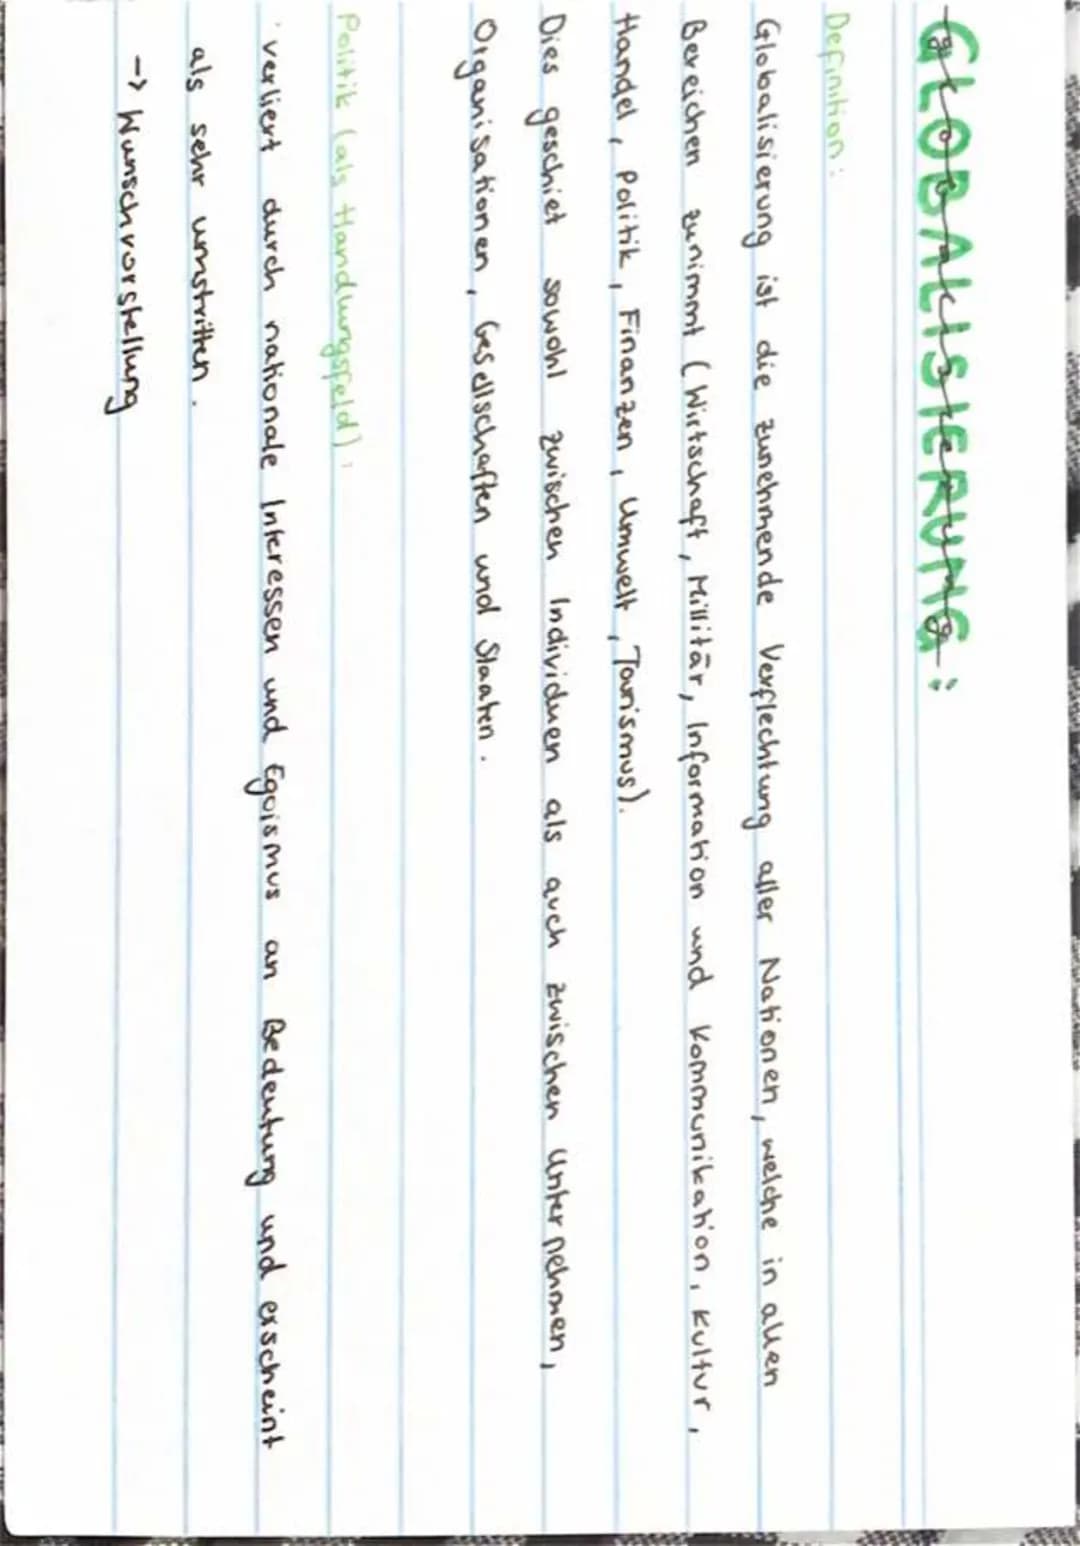 GLOBALISIERUNG:
Definition:
Globalisierung ist die zunehmende Verflechtung aller Nationen, welche in allen
Bereichen zunimmt (Wirtschaft, Millitär, Information und Kommunikation, Kultur,
Handel, Politik, Finanzen, Umwelt, Tourismus).
Dies geschiet sowohl zwischen Individuen als auch zwischen Unternehmen,
Organisationen, Gesellschaften und Staaten.
Politik (als Handlungsfeld):
· verliert durch nationale Interessen und Egoismus an Bedeutung und erscheint
als sehr umstritten.
-> Wunschvorstellung